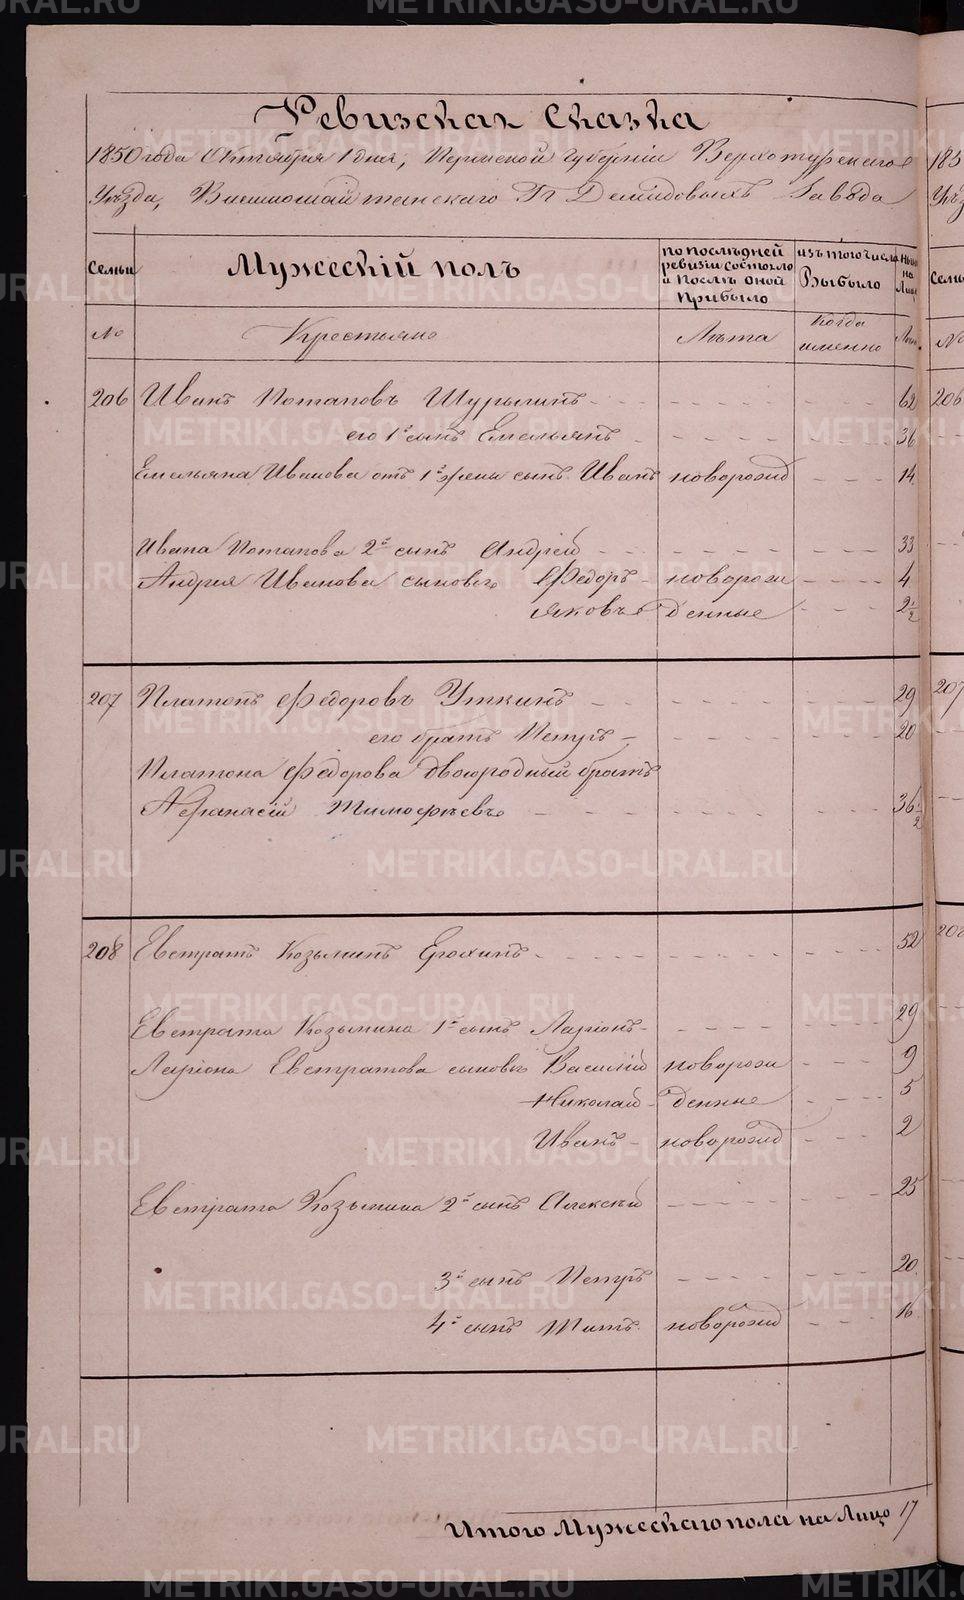 Ревизская Сказка
1850 года Октября 1 дня, Пермской Губерніи Верхотурскаго
Уѣзда, Висимошайтанскаго Гг Демидовыхъ Завода
Семьи
Мужескій полъ
по послѣдней ревизіи состояло и послѣ оной Прибыло
изъ того числа Выбыло
Нынѣ на Лицо
№ Крестьяне Лѣта когда именно Лѣта
206 Иванъ Потаповъ Шурыгинъ 62
его 1й сынъ Емельянъ 36
Емельяна Иванова отъ 1й жены сынъ Иванъ новорожд 14
Ивана Потапова 2й сынъ Андрей 33
Андрея Иванова сыновья Федоръ новорож 4
Яковъ денные 2 1/2
207 Платонъ Федоровъ Уткинъ 29
его братъ Петръ 20
Платона Федорова двоюродный братъ
Афанасій Тимофѣевъ 36 1/2
208 Евстратъ Козьминъ Ерохинъ 52
Евстрата Козьмина 1й сынъ Ларіонъ 29
Ларіона Евстратова сыновья Василій новорож 9
Николай денные 5
Иванъ новорожд 2
Евстрата Козьмина 2й сынъ Алексѣй 25
3й сынъ Петръ 20
4й сынъ Титъ новорожд 16
Итого Мужескаго пола на Лицо 17
METRIKI.GASO-URAL.RU